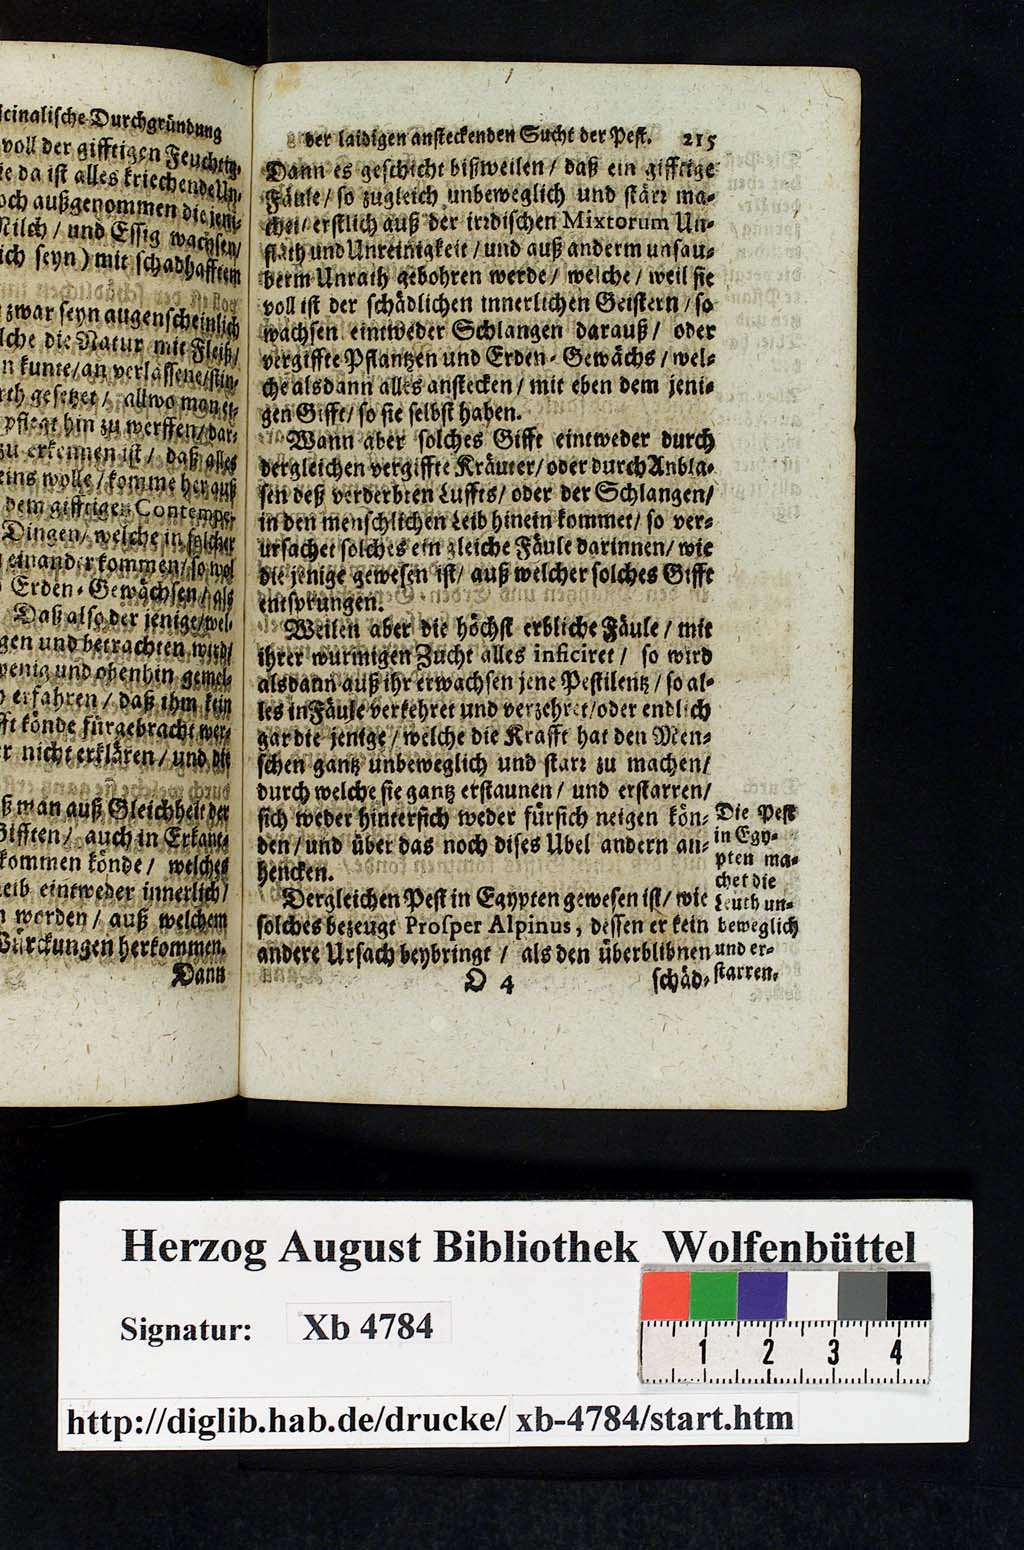 icinalische Durchgründung
voll der gifftigen Feuchtig-
e da ist alles kriechende Un-
och außgenommen die jeni-
Milch / und Essig wachsen/
ich seyn) mit schadhafftem
zwar seyn augenscheinlich
lche die Natur mit Fleiß/
n kunte/an verlassene/stin-
rth gesetzet / allwo man et-
pflegt hin zu werffen/dar-
zu erkennen ist / daß alles
eins wolle/komme her auß
dem gifftigen Contemper
Dingen/ welche in solcher
einander kommen/so wol
Erden-Gewächsen/als
Daß also der jenige/wel-
gen und betrachten wird/
wenig und obenhin gemel-
erfahren / daß ihm kein
fft könde fürgebracht wer-
r nicht erklären / und die
ß man auß Gleichheit der
Gifften / auch in Erkant-
kommen könde / welches
Leib eintweder innerlich/
n worden / auß welchem
Würckungen herkommen.
Dann
der laidigen ansteckenden Sucht der Pest. 215
Dann es geschicht bißweilen / daß ein gifftige
Fäule/ so zugleich unbeweglich und starr ma-
chet/ erstlich auß der irrdischen Mixtorum Un-
flath und Unreinigkeit / und auß anderm unsau-
berm Unrath gebohren werde/ welche / weil sie
voll ist der schädlichen innerlichen Geistern / so
wachsen eintweder Schlangen darauß/ oder
vergiffte Pflantzen und Erden-Gewächs / wel-
che alsdann alles anstecken / mit eben dem jeni-
gen Gifft/ so sie selbst haben.
Wann aber solches Gifft eintweder durch
dergleichen vergiffte Kräuter/ oder durch Anbla-
sen deß verderbten Luffts/ oder der Schlangen/
in den menschlichen Leib hinein kommet/ so ver-
ursachet solches ein gleiche Fäule darinnen/ wie
die jenige gewesen ist/ auß welcher solches Gifft
entsprungen.
Weilen aber die höchst erbliche Fäule / mit
ihrer wurmigen Zucht alles inficiret / so wird
alsdann auß ihr erwachsen jene Pestilentz / so al-
les in Fäule verkehret und verzehret/oder endlich
gar die jenige / welche die Krafft hat den Men-
schen gantz unbeweglich und starr zu machen/
durch welche sie gantz erstaunen / und erstarren/
sich weder hintersich weder fürsich neigen kön-
den / und über das noch dises Ubel andern an-
hencken.
Dergleichen Pest in Egypten gewesen ist/ wie
solches bezeugt Prosper Alpinus, dessen er kein
andere Ursach beybringt / als den überblibnen
D 4 schäd-
Die Pest
in Egy-
pten ma-
chet die
Leuth un-
beweglich
und er-
starren.
Herzog August Bibliothek Wolfenbüttel
Signatur: Xb 4784
1 2 3 4
http://diglib.hab.de/drucke/ xb-4784/start.htm